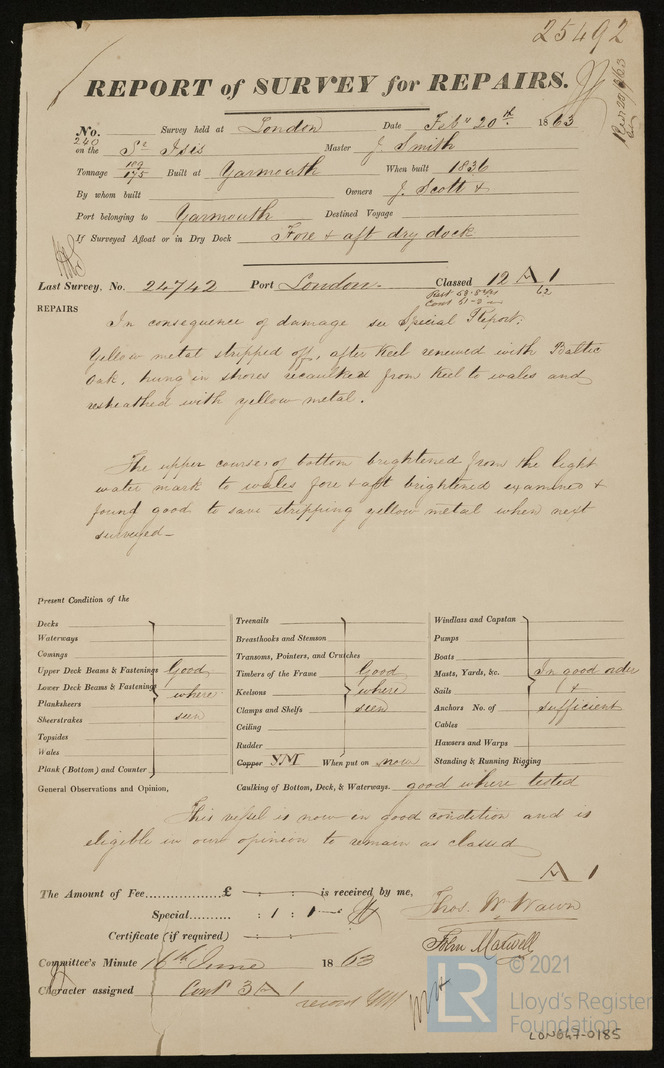 25492
REPORT of SURVEY for REPAIRS.
No. 240 Survey held at London Date Feby 20th 1863
on the Sr Isis Master J. Smith
Tonnage 189/175 Built at Yarmouth When built 1836
By whom built Owners J. Scott &
Port belonging to Yarmouth Destined Voyage
If Surveyed Afloat or in Dry Dock Fore & aft dry dock
Last Survey. No. 24742 Port London. Classed 12 A 1
62
REPAIRS
In consequence of damage see Special Report.
Yellow metal stripped off, after Keel renewed with Baltic
Oak, hung in shores recaulked from Keel to wales and
resheathed with yellow metal.
The upper courses of bottom brightened from the light
water mark to wales fore & aft brightened examined &
found good to save stripping yellow metal when next
surveyed
Present Condition of the
Decks
Waterways
Comings
Upper Deck Beams & Fastenings Good
Lower Deck Beams & Fastenings where
Planksheers
Sheerstrakes seen
Topsides
Wales
Plank (Bottom) and Counter
Treenails
Breasthooks and Stemson
Transoms, Pointers, and Crutches
Timbers of the Frame Good
Keelsons where
Clamps and Shelfs seen
Ceiling
Rudder
Copper YM When put on now
Windlass and Capstan
Pumps
Boats
Masts, Yards, &c. In good order
Sails &
Anchors No. of sufficient
Cables
Hawsers and Warps
Standing & Running Rigging
General Observations and Opinion, Caulking of Bottom, Deck, & Waterways. good where tested
This vessel is now in good condition and is
eligible in our opinion to remain as classed
A 1
The Amount of Fee................£ : : is received by me,
Special.......... : 1 : 1
Certificate (if required) : :
Thos. W. Wawn
John Maxwell
Committee's Minute 16th June 1863
Character assigned Cont 3 A 1
record YM
LR
© 2021
Lloyd's Register
Foundation
LON647-0185